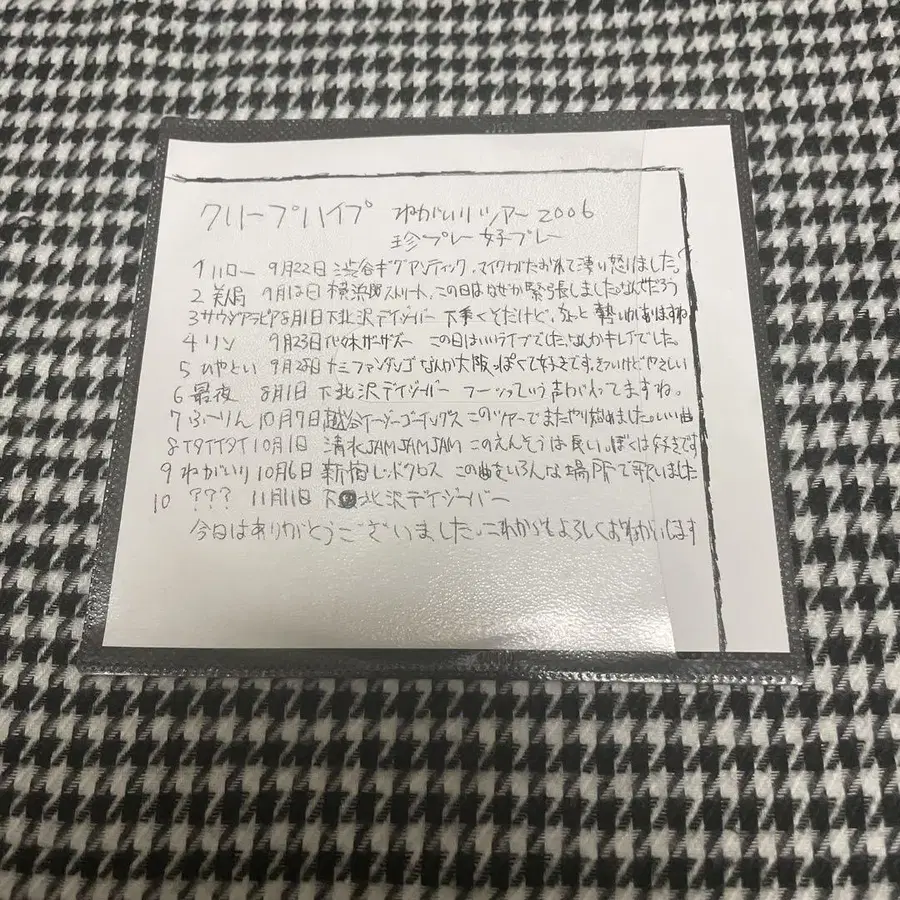 クリープハイプ ねがいりツアー2006
珍プレー好プレー
1 ハロー 9月22日 渋谷ギグアンティック、マイクがたおれて凄い怒りました。
2 美局 9月12日 横浜 ストリート、この日はなぜか緊張しました。なんでだろう
3 サウジアラビア 8月1日 下北沢デイジーバー 下手くそだけど、勢いがありますね
4 リン 9月23日 代々木ザーザズー この日はいいライブでした。なんかキレイでした。
5 ひやとい 9月28日 十三ファンダンゴ なんか大阪っぽくて好きです。きついけどやさしい
6 最夜 8月1日 下北沢デイジーバー フーッっていう声がわってますね。
7 ふーりん 10月7日 越谷イージーゴーイングス このツアーでまたやり始めました。いい曲
8 イタイイタイ 10月1日 清水JAMJAMJAM このえんそうは長い。ぼくは好きです
9 ねがいり 10月6日 新宿レッドクロス この曲をいろんな場所で歌いました
10 ??? 11月11日 下北沢デイジーバー
今日はありがとうございました。これからもよろしくおねがいします